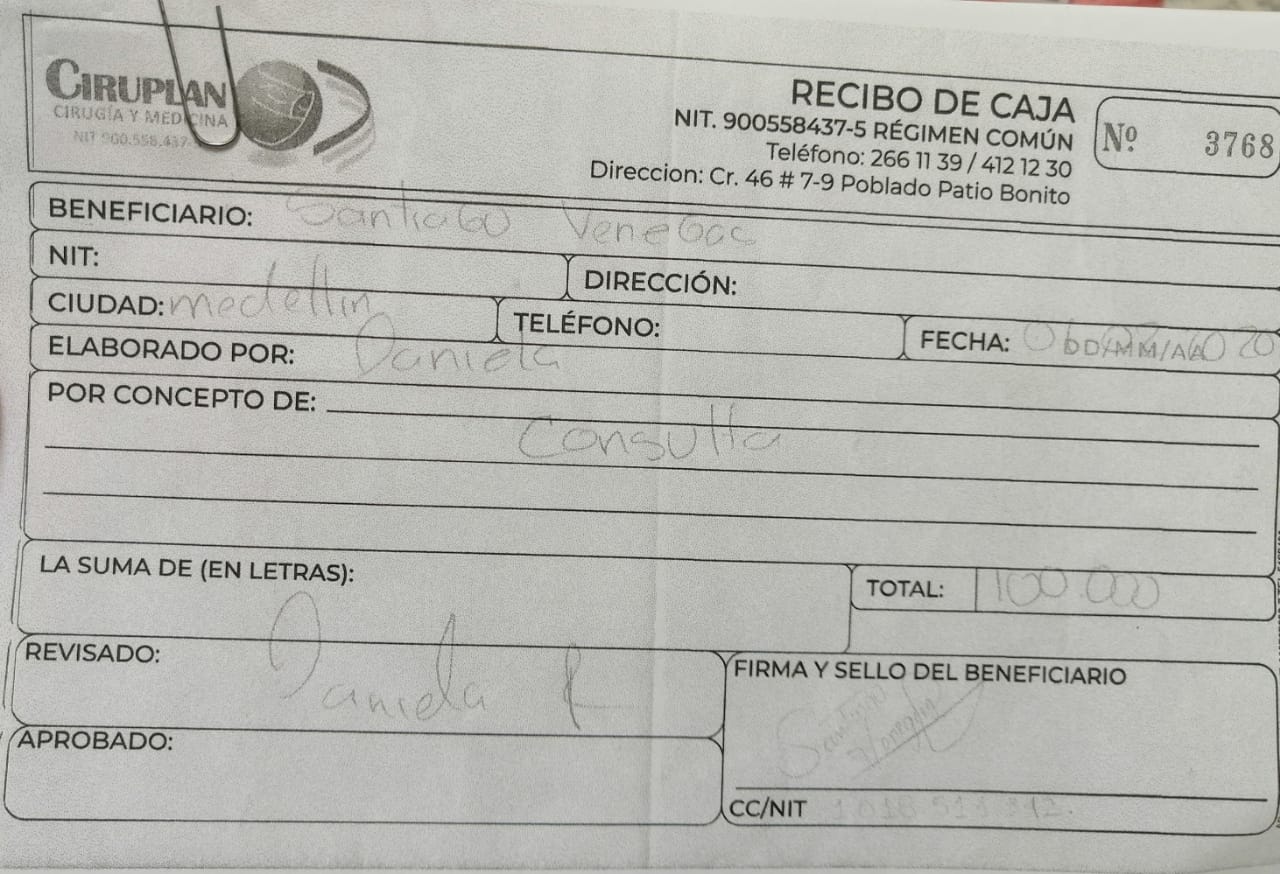 CIRUPLAN
CIRUGÍA Y MEDICINA
NIT 900.558.437-
RECIBO DE CAJA
NIT. 900558437-5 RÉGIMEN COMÚN
Teléfono: 266 11 39 / 412 12 30
Direccion: Cr. 46 # 7-9 Poblado Patio Bonito
Nº 3768
BENEFICIARIO: Santiago Venegas
NIT:
DIRECCIÓN:
CIUDAD: medellin
TELÉFONO:
FECHA: DD/MM/AA
ELABORADO POR: Daniela
POR CONCEPTO DE:
Consulta
LA SUMA DE (EN LETRAS):
TOTAL: 100.000
REVISADO: Daniela R
FIRMA Y SELLO DEL BENEFICIARIO
Santiago
Venegas
APROBADO:
CC/NIT